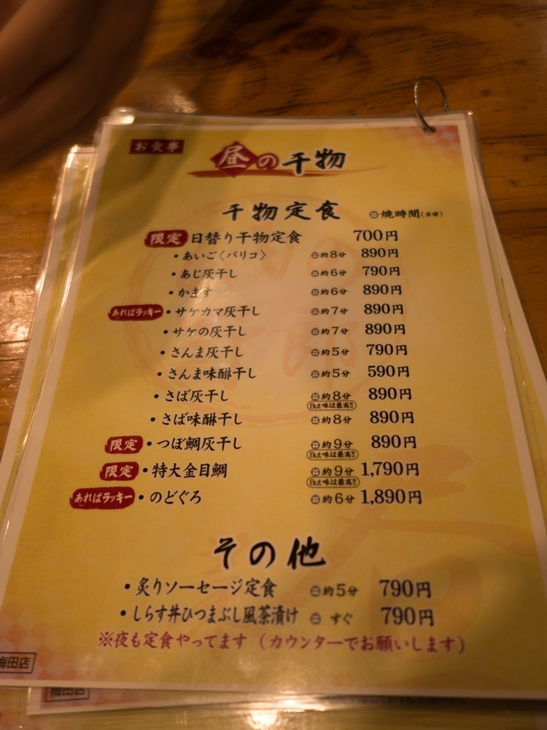 お食事
昼の干物
干物定食 焼時間(目安)
限定 日替り干物定食 700円
・あいご〈バリコ〉 約8分 890円
・あじ灰干し 約6分 790円
・かます 約6分 890円
あればラッキー ・サケカマ灰干し 約7分 890円
・サケの灰干し 約7分 890円
・さんま灰干し 約5分 790円
・さんま味醂干し 約5分 590円
・さば灰干し 約8分 890円
But味は最高!!
・さば味醂干し 約8分 890円
限定 ・つぼ鯛灰干し 約9分 890円
But味は最高!!
限定 ・特大金目鯛 約9分 1,790円
But味は最高!!
あればラッキー ・のどぐろ 約6分 1,890円
その他
・炙りソーセージ定食 約5分 790円
・しらす丼ひつまぶし風茶漬け すぐ 790円
※夜も定食やってます（カウンターでお願いします）
梅田店
梅田店